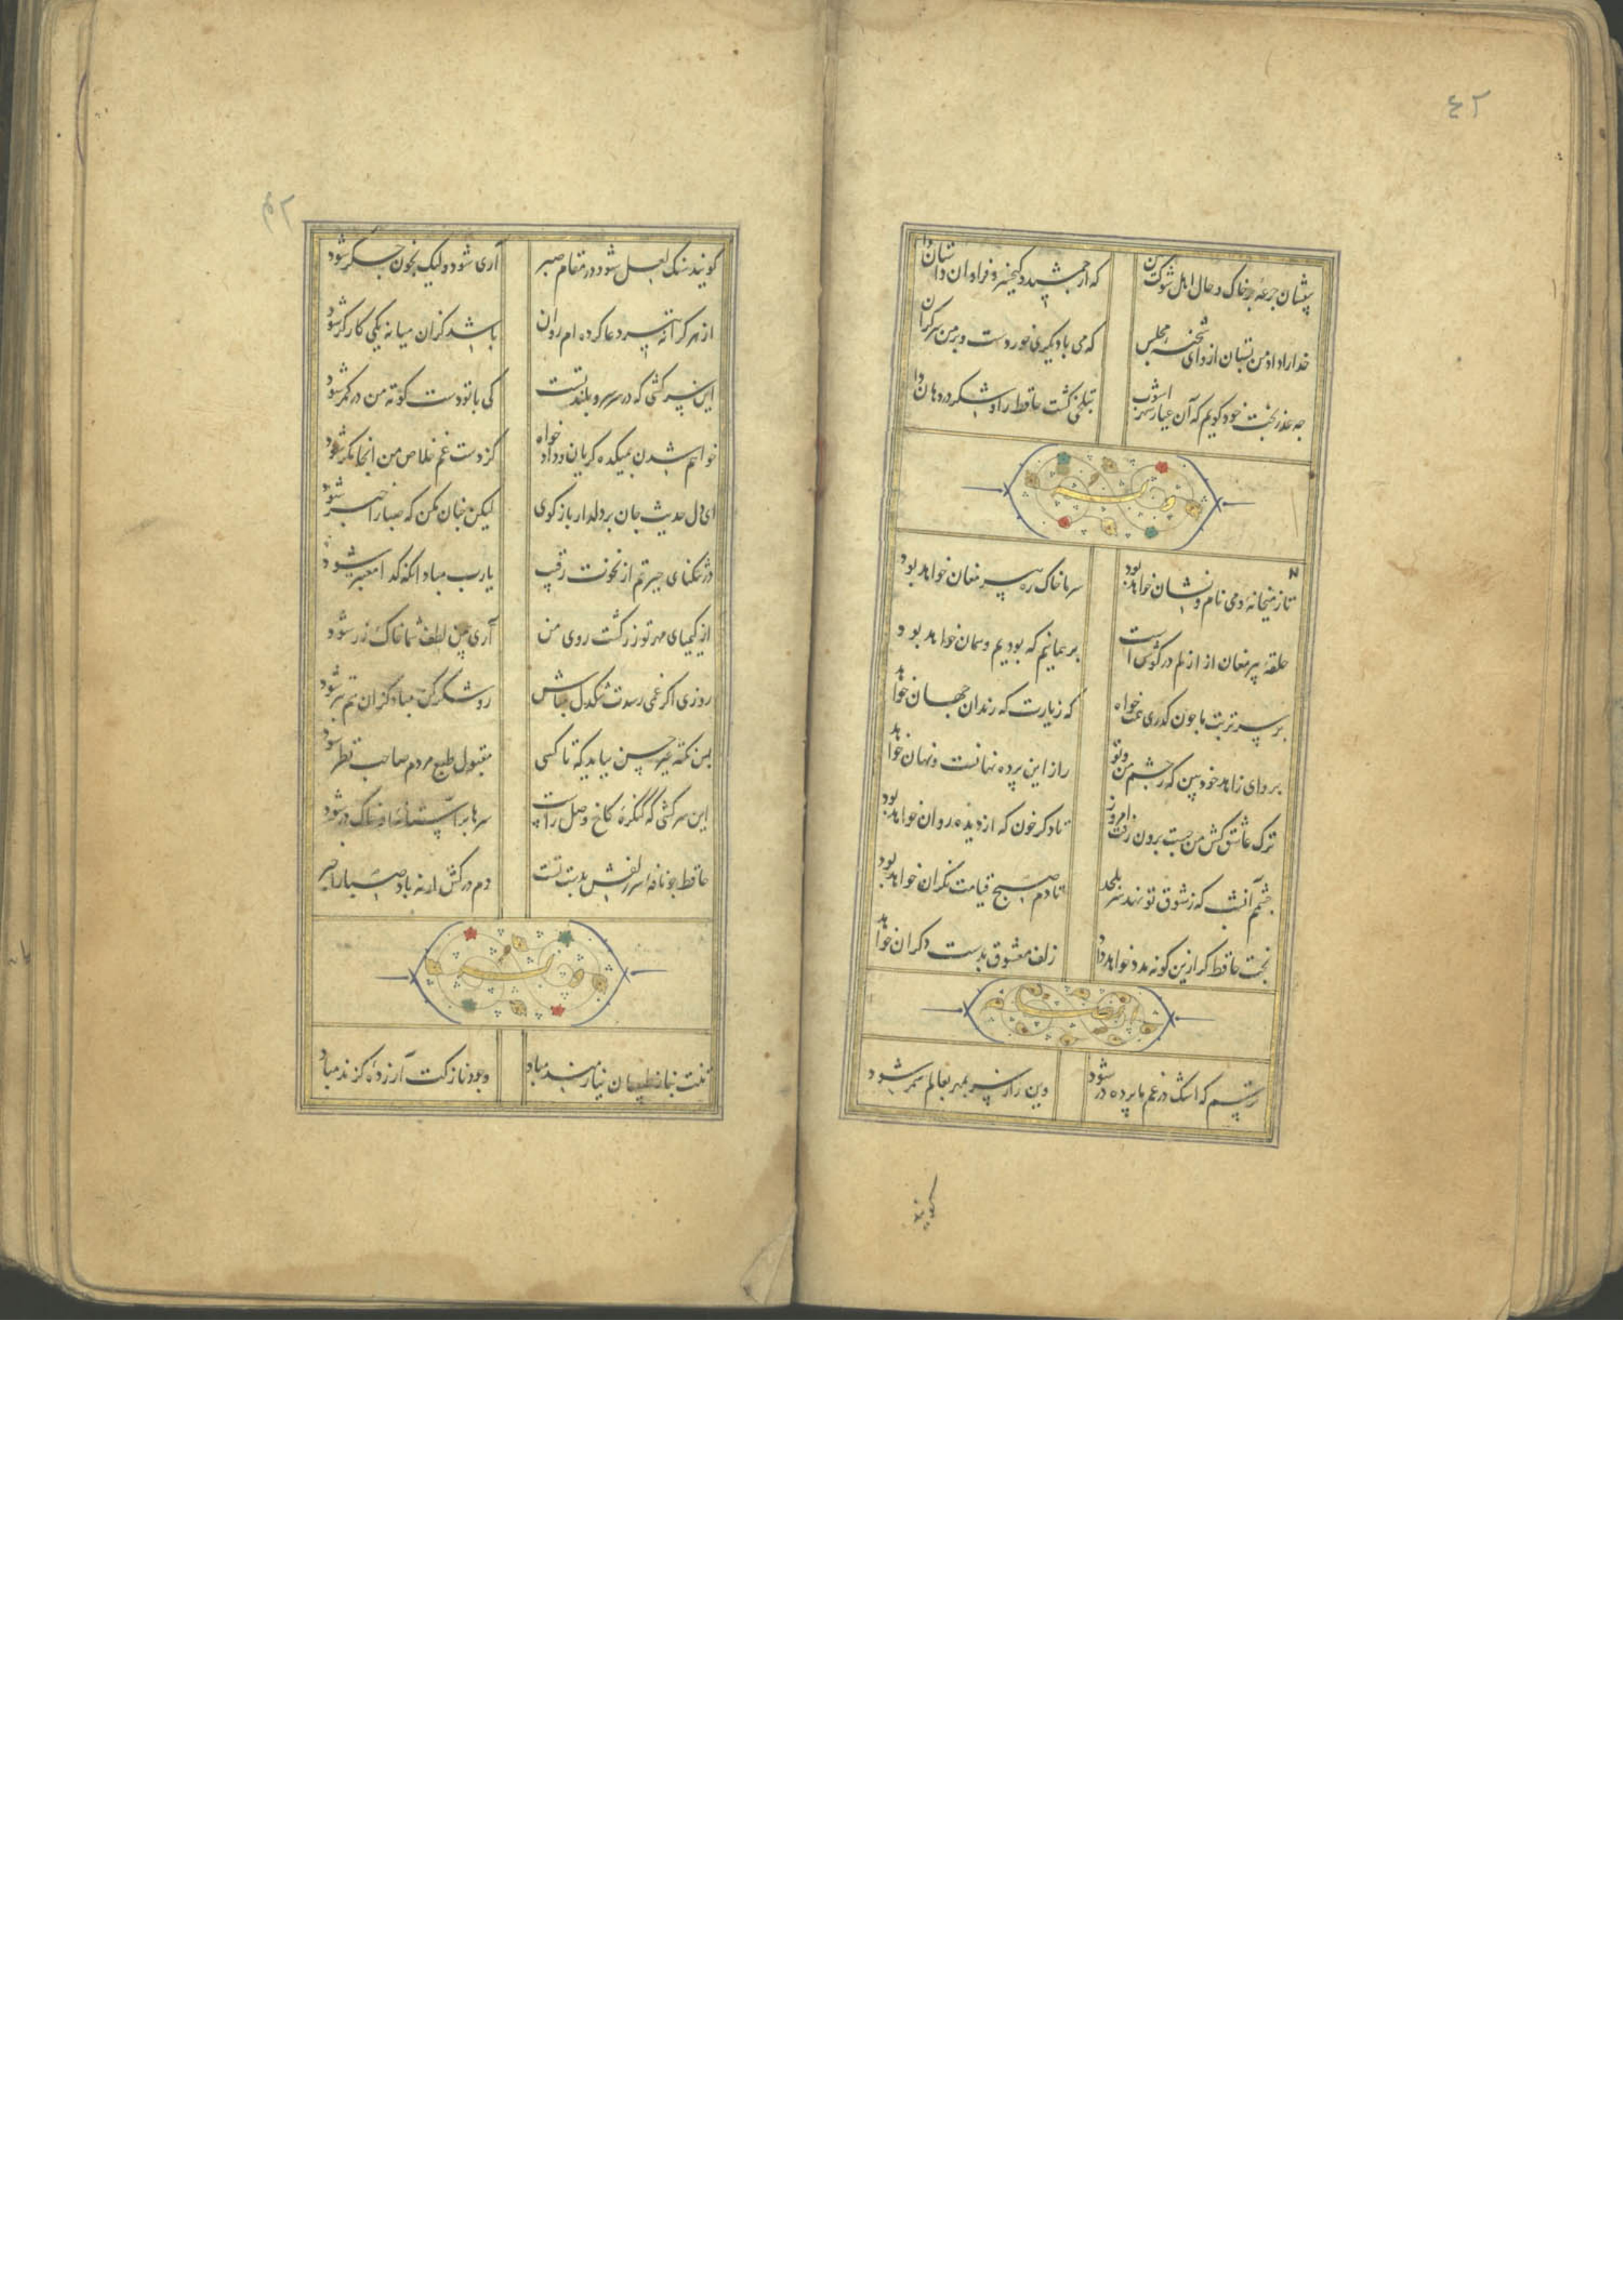 ٤٢
بیفشان جرعهٔ بر خاک و حال اهل شوکت بین
که از جمشید و کیخسرو فراوان داستان دارد
خدا را داد من بستان ازو ای شحنه مجلس
که می با دیگری خوردست و بر من سرگران دارد
چه عذر بخت خود گویم که آن عیار شهرآشوب
بتلخی کشت حافظ را و شکر در دهان دارد
وله
تا ز میخانه و می نام و نشان خواهد بود
سر ما خاک ره پیر مغان خواهد بود
حلقهٔ پیر مغان از ازلم در گوش است
بر همانیم که بودیم و همان خواهد بود
بر سر تربت ما چون گذری همت خواه
که زیارت که رندان جهان خواهد
برو ای زاهد خودبین که ز چشم من و تو
راز این پرده نهانست و نهان خواهد
ترک عاشق کش من مست برون رفت امروز
تا دگر خون که از دیده روان خواهد بود
چشم آنشب که ز شوق تو نهد سر بلحد
تا دم صبح قیامت نگران خواهد بود
بخت حافظ گر ازین گونه مدد خواهد داد
زلف معشوق بدست دگران خواهد
ترسم که اشک در غم ما پرده در شود
وین راز سر بمهر بعالم سمر شود
گویند
گویند سنگ لعل شود در مقام صبر
آری شود ولیک بخون جگر شود
از هر کرانه تیر دعا کرده ام روان
باشد کزان میانه یکی کارگر شود
این سرکشی که در سر سرو بلند تست
کی با تو دست کوته من در کمر شود
خواهم شدن بمیکده گریان و دادخواه
کز دست غم خلاص من آنجا مگر شود
ای دل حدیث جان بر دلدار بازگوی
لیکن چنان مکن که صبا را خبر شود
در تنگنای حیرتم از نخوت رقیب
یارب مباد آنکه گدا معتبر شود
از کیمیای مهر تو زر گشت روی من
آری بیمن لطف شما خاک زر شود
روزی اگر غمی رسدت تنگدل مباش
رو شکر کن مباد کزان بتر شود
بس نکته غیر حسن بباید که تا کسی
مقبول طبع مردم صاحب نظر شود
این سرکشی که کنگرهٔ کاخ وصل راست
سرها بر آستانهٔ او خاک در شود
حافظ چو نافه سر زلفش بدست تست
دم درکش ار نه باد صبا را خبر
وله
تنت بناز طبیبان نیازمند مباد
وجود نازکت آزردهٔ گزند مباد